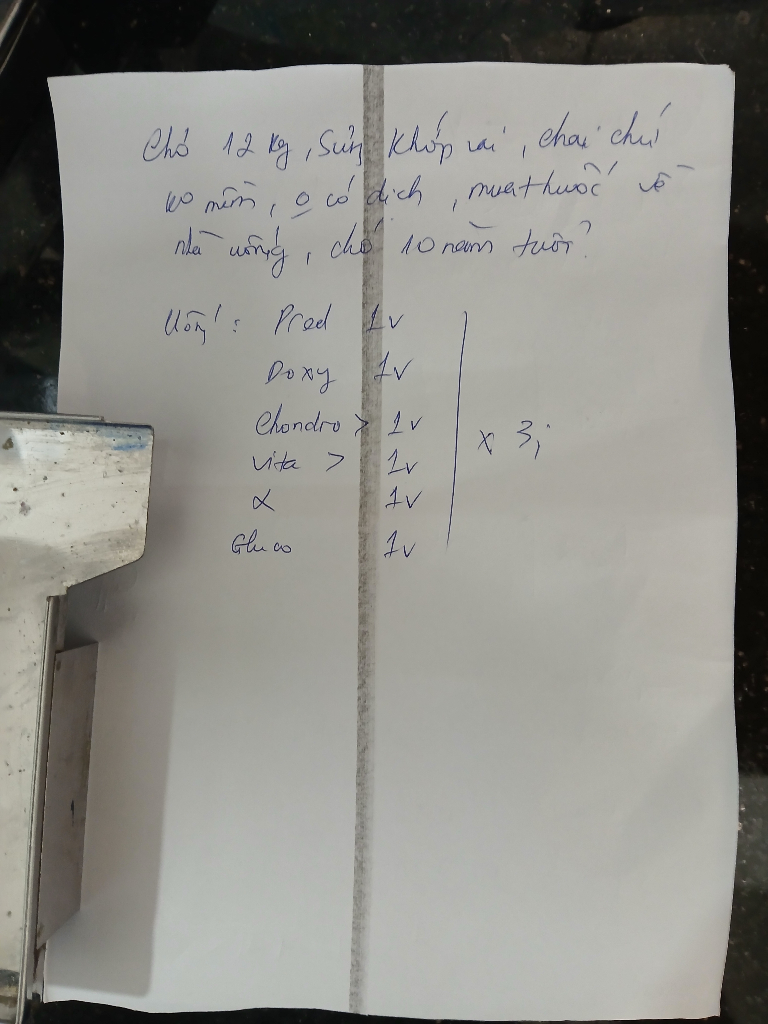 Chó 12 kg, Sưng khớp vai, chai chứ
ko mềm, 0 có dịch, mua thuốc về
nhà uống, chó 10 năm tuổi?
Uống: Pred 1v
Doxy 1v
Chondro > 1v
Vita > 1v
α 1v
Gluco 1v
x 3,